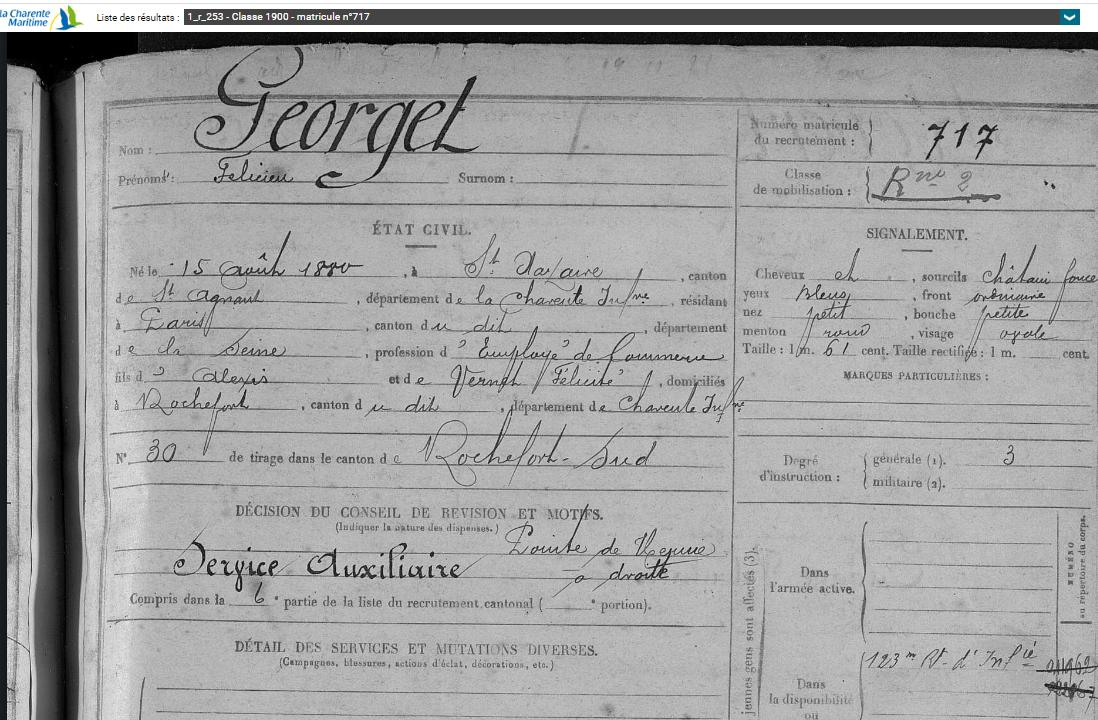 la Charente Maritime
Liste des résultats : 1_r_253 - Classe 1900 - matricule n°717
Nom : Georget
Prénoms : Félicien Surnom :
Numéro matricule du recrutement : 717
Classe de mobilisation : Rne 2
ÉTAT CIVIL.
Né le 15 Août 1880, à St Nazaire, canton
de St Agnant, département de la Charente Infre, résidant
à Paris, canton du dit, département
de la Seine, profession d'Employé de Commerce
fils d'Alexis et de Vernet Félicité, domiciliés
à Rochefort, canton du dit, département de Charente Infre
N° 30 de tirage dans le canton de Rochefort-Sud
SIGNALEMENT.
Cheveux ch, sourcils châtain foncé
yeux bleus, front ordinaire
nez petit, bouche petite
menton rond, visage ovale
Taille : 1 m. 61 cent. Taille rectifiée : 1 m. cent.
MARQUES PARTICULIÈRES :
Degré d'instruction : générale (1). 3
militaire (2).
DÉCISION DU CONSEIL DE REVISION ET MOTIFS.
(Indiquer la nature des dispenses.)
Service Auxiliaire Pointe de Hernie
à droite
Compris dans la 6e partie de la liste du recrutement cantonal ( e portion).
DÉTAIL DES SERVICES ET MUTATIONS DIVERSES.
(Campagnes, blessures, actions d'éclat, décorations, etc.)
jeunes gens sont affectés (3).
Dans l'armée active.
NUMÉRO au répertoire du corps.
Dans la disponibilité ou
123me Rt. d'Infie